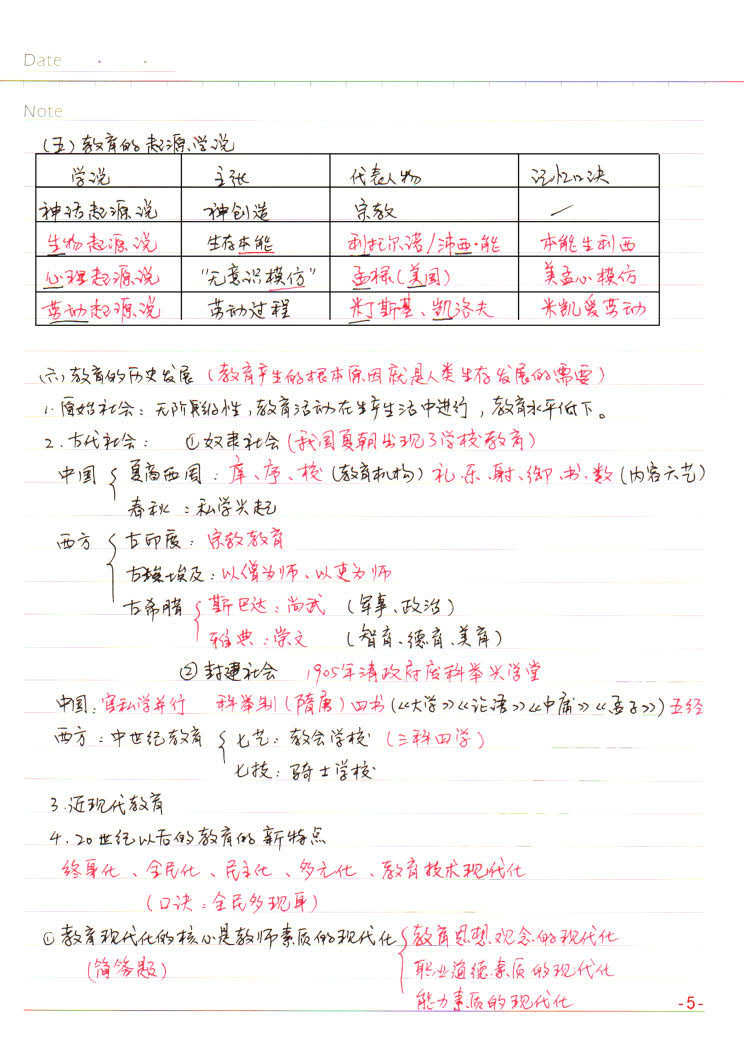 Date
Note
(五) 教育的起源学说
学说 主张 代表人物 记忆口决
神话起源说 神创造 宗教 —
生物起源说 生存本能 利托尔诺/沛西·能 本能生利西
心理起源说 “无意识模仿” 孟禄(美国) 美孟心模仿
劳动起源说 劳动过程 米丁斯基、凯洛夫 米凯爱劳动
(六) 教育的历史发展 (教育产生的根本原因就是人类生存发展的需要)
1. 原始社会: 无阶级性,教育活动在生产生活中进行,教育水平低下。
2. 古代社会: ①奴隶社会 (我国夏朝出现了学校教育)
中国 夏商西周: 庠、序、校 (教育机构) 礼、乐、射、御、书、数 (内容六艺)
春秋: 私学兴起
西方 古印度: 宗教教育
古埃及: 以僧为师、以吏为师
古希腊 斯巴达: 尚武 (军事、政治)
雅典: 崇文 (智育、德育、美育)
②封建社会 1905年清政府废科举兴学堂
中国: 官私学并行 科举制(隋唐) 四书(《大学》《论语》《中庸》《孟子》) 五经
西方: 中世纪教育 七艺: 教会学校 (三科四学)
七技: 骑士学校
3. 近现代教育
4. 20世纪以后的教育的新特点
终身化、全民化、民主化、多元化、教育技术现代化
(口诀: 全民多现身)
①教育现代化的核心是教师素质的现代化 教育思想观念的现代化
(简答题) 职业道德素质的现代化
能力素质的现代化
-5-